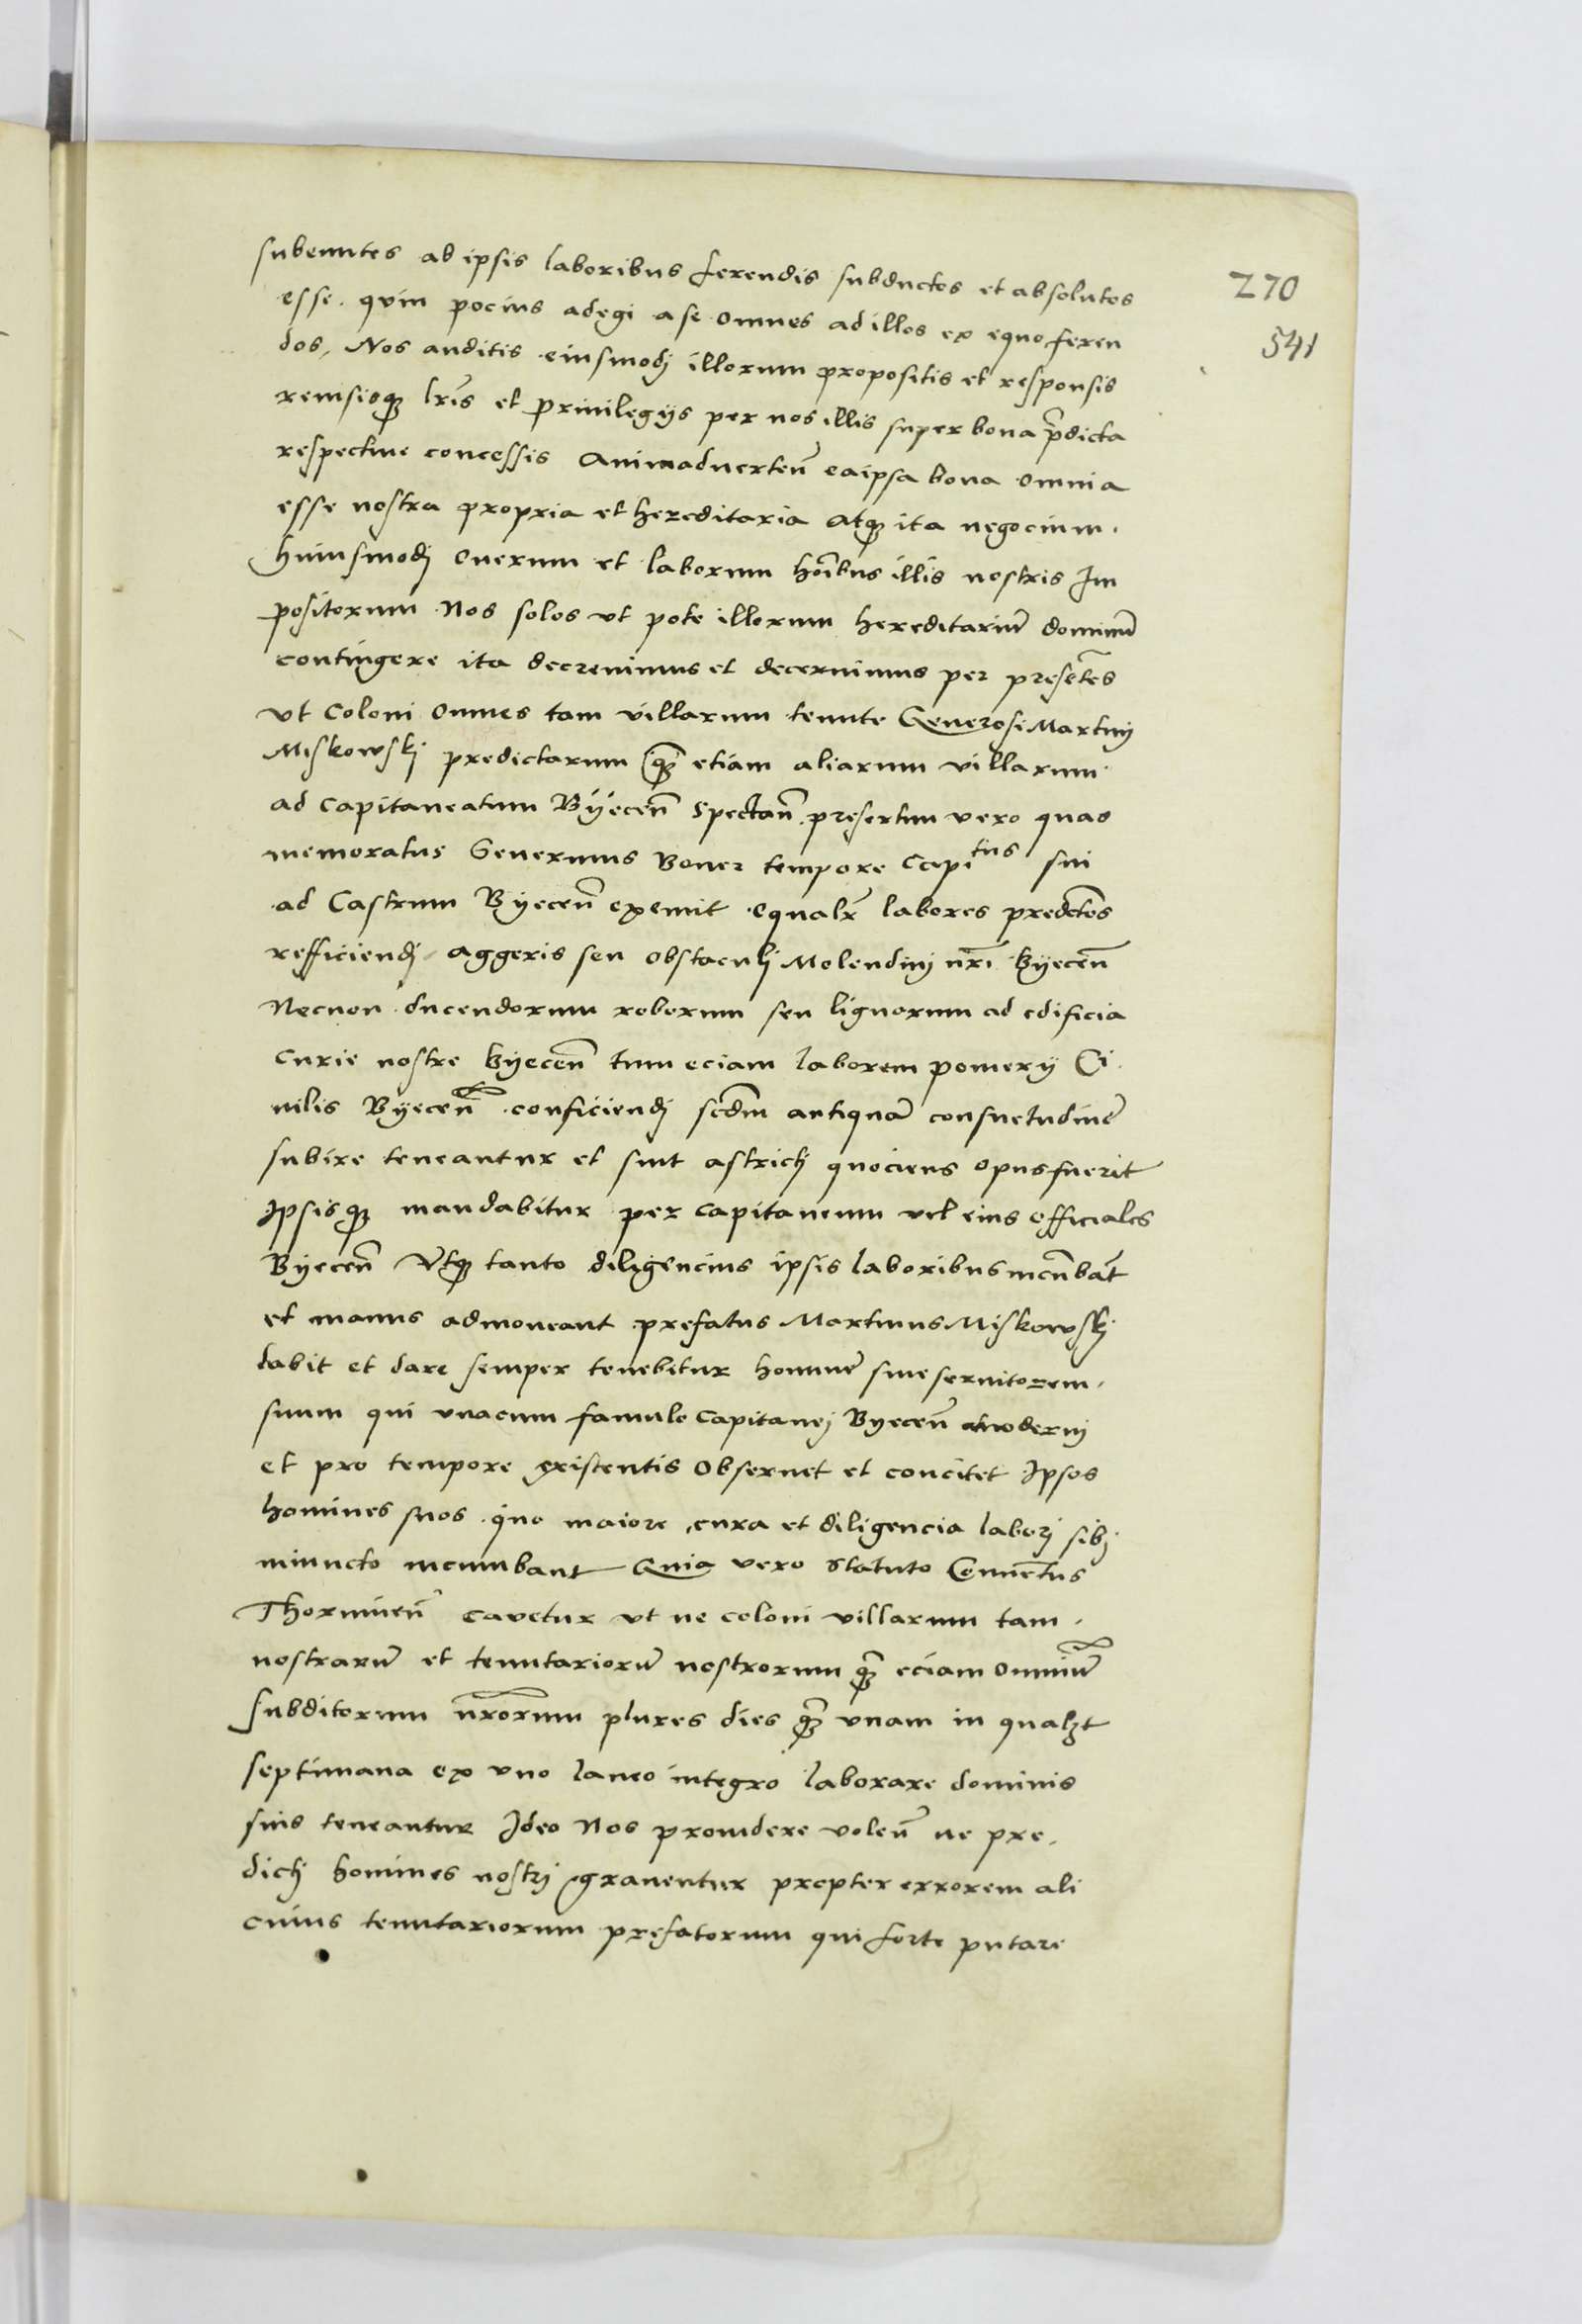 subeuntes ab ipsis laboribus ferendis subductos et absolutos
esse. quin pocius adegi a se omnes ad illos ex equo feren
dos, Nos auditis eiusmodj illorum propositis et responsis
reuisisqꝫ lr̃is et priuilegijs per nos illis super bona p̃dicta
respectiue concessis Animaduerteñ ea ipsa bona omnia
esse nostra propria et hereditaria atqꝫ ita negocium.
huiusmodj onerum et laborum hõibus illis nostris Im
positorum Nos solos vt pote illorum hereditariũ dominũ
contingere ita decreuimus et decernimus per presẽtes
vt coloni omnes tam villarum tenute Generosi Martinj
Miskowskj predictarum qꝫ̃ etiam aliarum villarum
ad capitaneatum Byeceñ spectañ. presertim vero quas
memoratus Seuerinus Boner tempore Capitus sui
ad Castrum Byeceñ exemit equalr̃ labores predctõs
refficiendj aggeris seu obstaculj Molendinj nr̃i Byeceñ
Necnon ducendorum roborum seu lignorum ad edificia
curie nostre Byeceñ tum eciam laborem pomerij Ci
uilis Byeceñ conficiendj scd̃m antiquã consuetudinẽ
subire teneantur et sint astrictj quociens opus fuerit
Ipsisqꝫ mandabitur per capitaneum vel eius officiales
Byeceñ Vtqꝫ tanto diligencius ipsis laboribus incũbãt
et manus admoueant prefatus Martinus Miskowskj
dabit et dare semper tenebitur hominẽ siue seruitorem.
suum qui vnacum famulo capitanej Byeceñ modernj
et pro tempore existentis obseruet et concitet Ipsos
homines suos quo maiore cura et diligencia laborj sibj
iniuncto incumbant Quia vero statuto Conuẽtus
Thoruneñ cavetur vt ne coloni villarum tam.
nostrarũ et tenutariorũ nostrorum qꝫ̃ eciam omniũ
subditorum nr̃orum plures dies qꝫ̃ vnam in qualꝫt
septimana ex vno laneo integro laborare dominis
suis teneantur Ideo Nos prouidere voleñ ne pre.
dictj homines nostrj grauentur propter errorem ali
cuius tenutariorum prefatorum qui forte putare
270
541